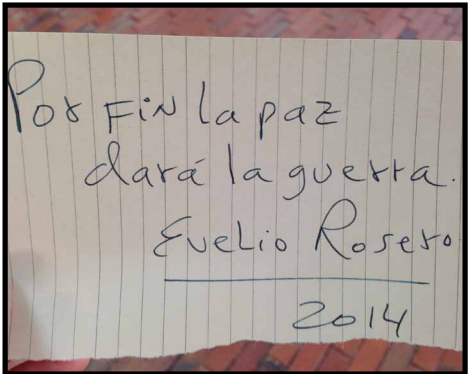 Por FiN la paz
dará la guerra.
Evelio Rosero
2014